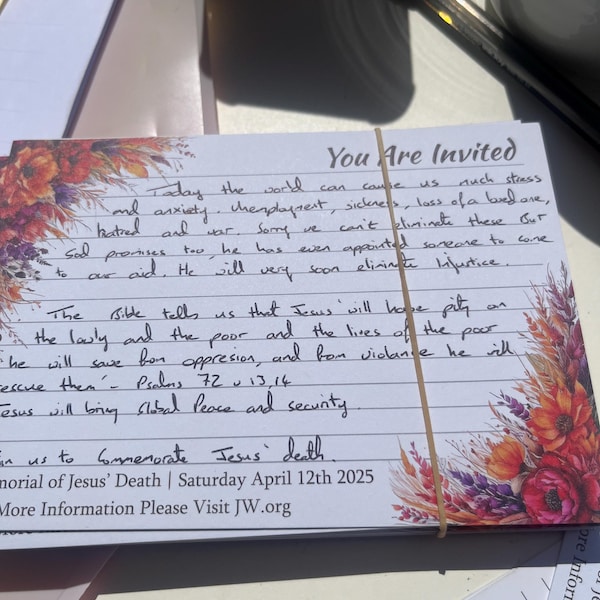 You Are Invited
Today the world can cause us much stress
and anxiety. Unemployment, sickness, loss of a loved one,
hatred and war. Sorry we can't eliminate these But
God promises too, he has even appointed someone to come
to our aid. He will very soon eliminate Injustice.
The Bible tells us that Jesus 'will have pity on
the lowly and the poor and the lives of the poor
he will save from oppresion, and from violance he will
rescue them' - Psalms 72 v 13,14
Jesus will bring Global Peace and security.
in us to Commemorate Jesus' death.
morial of Jesus' Death | Saturday April 12th 2025
More Information Please Visit JW.org
ore Inform